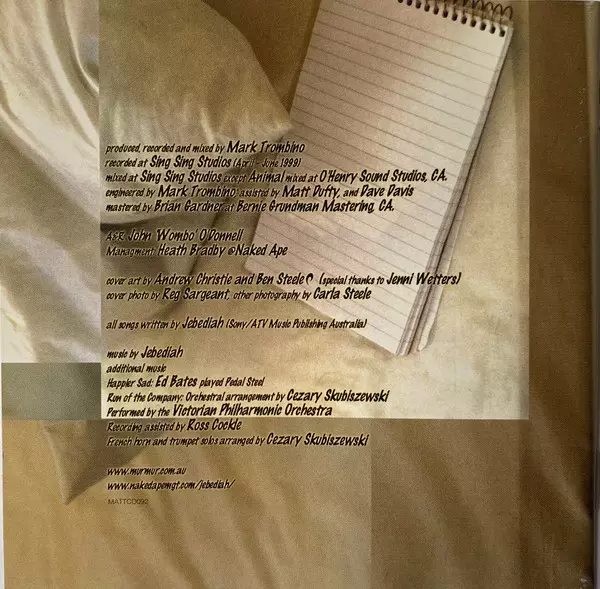 produced, recorded and mixed by Mark Trombino
recorded at Sing Sing Studios (April - June 1999)
mixed at Sing Sing Studios except Animal mixed at O'Henry Sound Studios, CA.
engineered by Mark Trombino assisted by Matt Duffy, and Dave Davis
mastered by Brian Gardner at Bernie Grundman Mastering, CA.
A&R John 'Wombo' O'Donnell
Managment Heath Bradby @Naked Ape
cover art by Andrew Christie and Ben Steele (special thanks to Jenni Wetters)
cover photo by Reg Sargeant, other photography by Carla Steele
all songs written by Jebediah (Sony/ATV Music Publishing Australia)
music by Jebediah
additional music
Happier Sad: Ed Bates played Pedal Steel
Run of the Company: Orchestral arrangement by Cezary Skubiszewski
Performed by the Victorian Philharmonic Orchestra
Recording assisted by Ross Cockle
French horn and trumpet solos arranged by Cezary Skubiszewski
www.murmur.com.au
www.nakedapemgt.com/jebediah/
MATTCD092